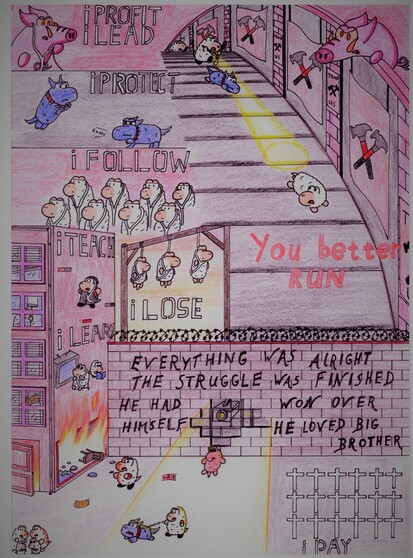 i PROFIT
i LEAD
i PROTECT
i FOLLOW
i TEACH
i LEARN
i LOSE
You better
RUN
EVERYTHING WAS ALRIGHT
THE STRUGGLE WAS FINISHED
HE HAD WON OVER
HIMSELF HE LOVED BIG
BROTHER
i PAY